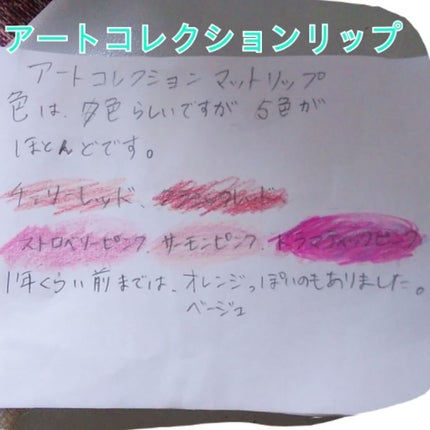 アートコレクションリップ
アートコレクションマットリップ
色は、夕色らしいですが 5色が
ほとんどです。
チェリーレッド、クラシックレッド
ストロベリーピンク、サーモンピンク、ドラマティックピンク
1年くらい前までは、オレンジっぽいのもありました。
ベージュ